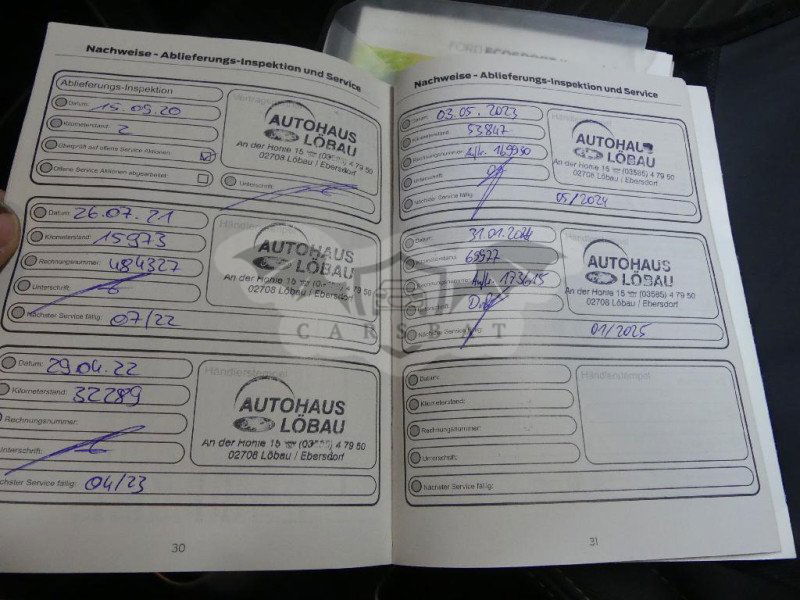 FORD ECOSPORT
Nachweise - Ablieferungs-Inspektion und Service
Ablieferungs-Inspektion
Datum: 15.09.20
Kilometerstand: 2
Überprüft auf offene Service Aktionen
Offene Service Aktionen abgearbeitet
Unterschrift:
AUTOHAUS
LÖBAU
An der Hohle 15 ☏ (03585) 4 79 50
02708 Löbau / Ebersdorf
Datum: 26.07.21
Kilometerstand: 15973
Rechnungsnummer: 484327
Unterschrift:
Nächster Service fällig: 07/22
Händlerstempel
AUTOHAUS
LÖBAU
An der Hohle 15 ☏ (03585) 4 79 50
02708 Löbau / Ebersdorf
Datum: 29.04.22
Kilometerstand: 32289
Rechnungsnummer:
Unterschrift:
Nächster Service fällig: 04/23
Händlerstempel
AUTOHAUS
LÖBAU
An der Hohle 15 ☏ (03585) 4 79 50
02708 Löbau / Ebersdorf
30
Nachweise - Ablieferungs-Inspektion und Service
Datum: 03.05.2023
Kilometerstand: 53847
Rechnungsnummer:
Unterschrift:
Nächster Service fällig: 05/2024
AUTOHAUS
LÖBAU
An der Hohle 15 ☏ (03585) 4 79 50
02708 Löbau / Ebersdorf
Datum: 31.01.2024
Kilometerstand:
Rechnungsnummer:
Unterschrift:
Nächster Service fällig: 01/2025
AUTOHAUS
LÖBAU
An der Hohle 15 ☏ (03585) 4 79 50
02708 Löbau / Ebersdorf
Datum:
Kilometerstand:
Rechnungsnummer:
Unterschrift:
Nächster Service fällig:
Händlerstempel
31